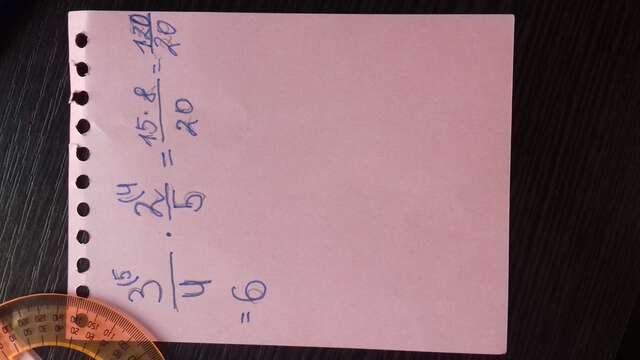 3⁽⁵/4 · 2⁽⁴/5 = 15·8/20 = 120/20
= 6